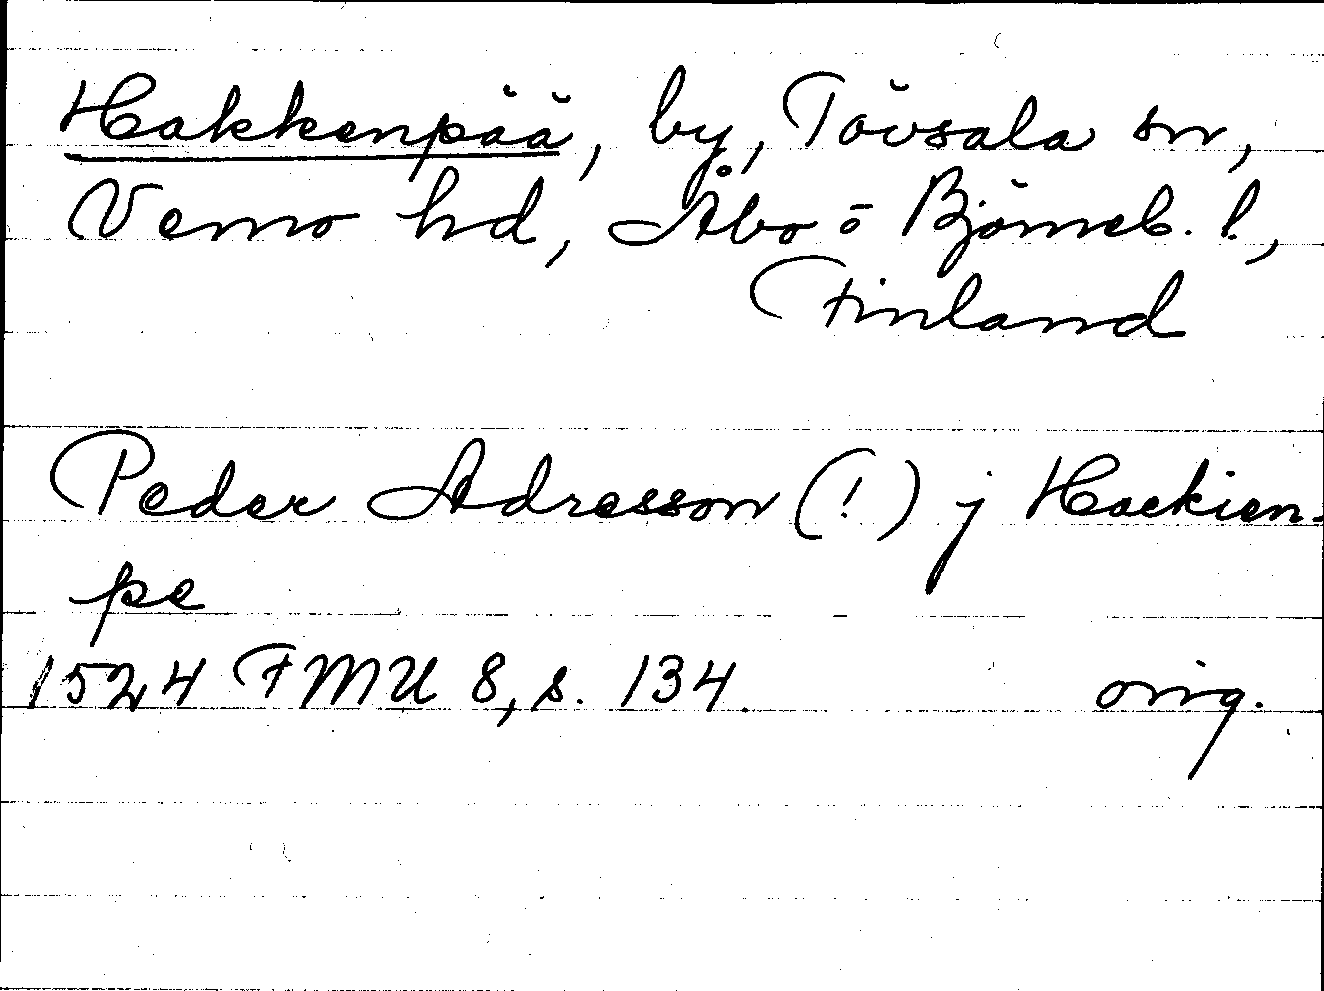 Hakkenpää, by, Tövsala sn,
Vemo hd, Åbo o Björneb. l.,
Finland
Peder Adresson (!) j Hackien-
pe
1524 FMU 8, s. 134. orig.